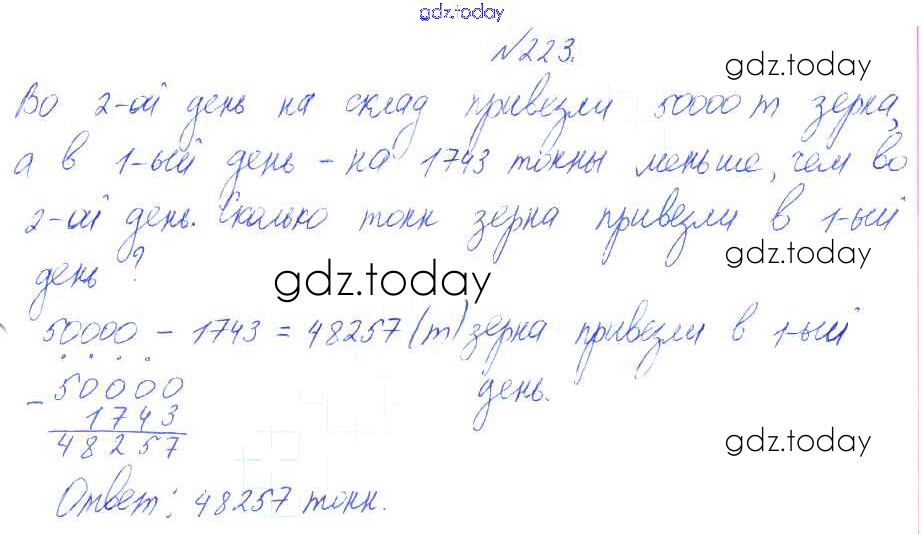 gdz.today
№223.
gdz.today
Во 2-ой день на склад привезли 50000 т зерна,
а в 1-ый день - на 1743 тонны меньше, чем во
2-ой день. Сколько тонн зерна привезли в 1-ый
gdz.today
день?
gdz.today
50000 - 1743 = 48257 (т) зерна привезли в 1-ый
день.
- 50000
1743
48257
gdz.today
Ответ: 48257 тонн.